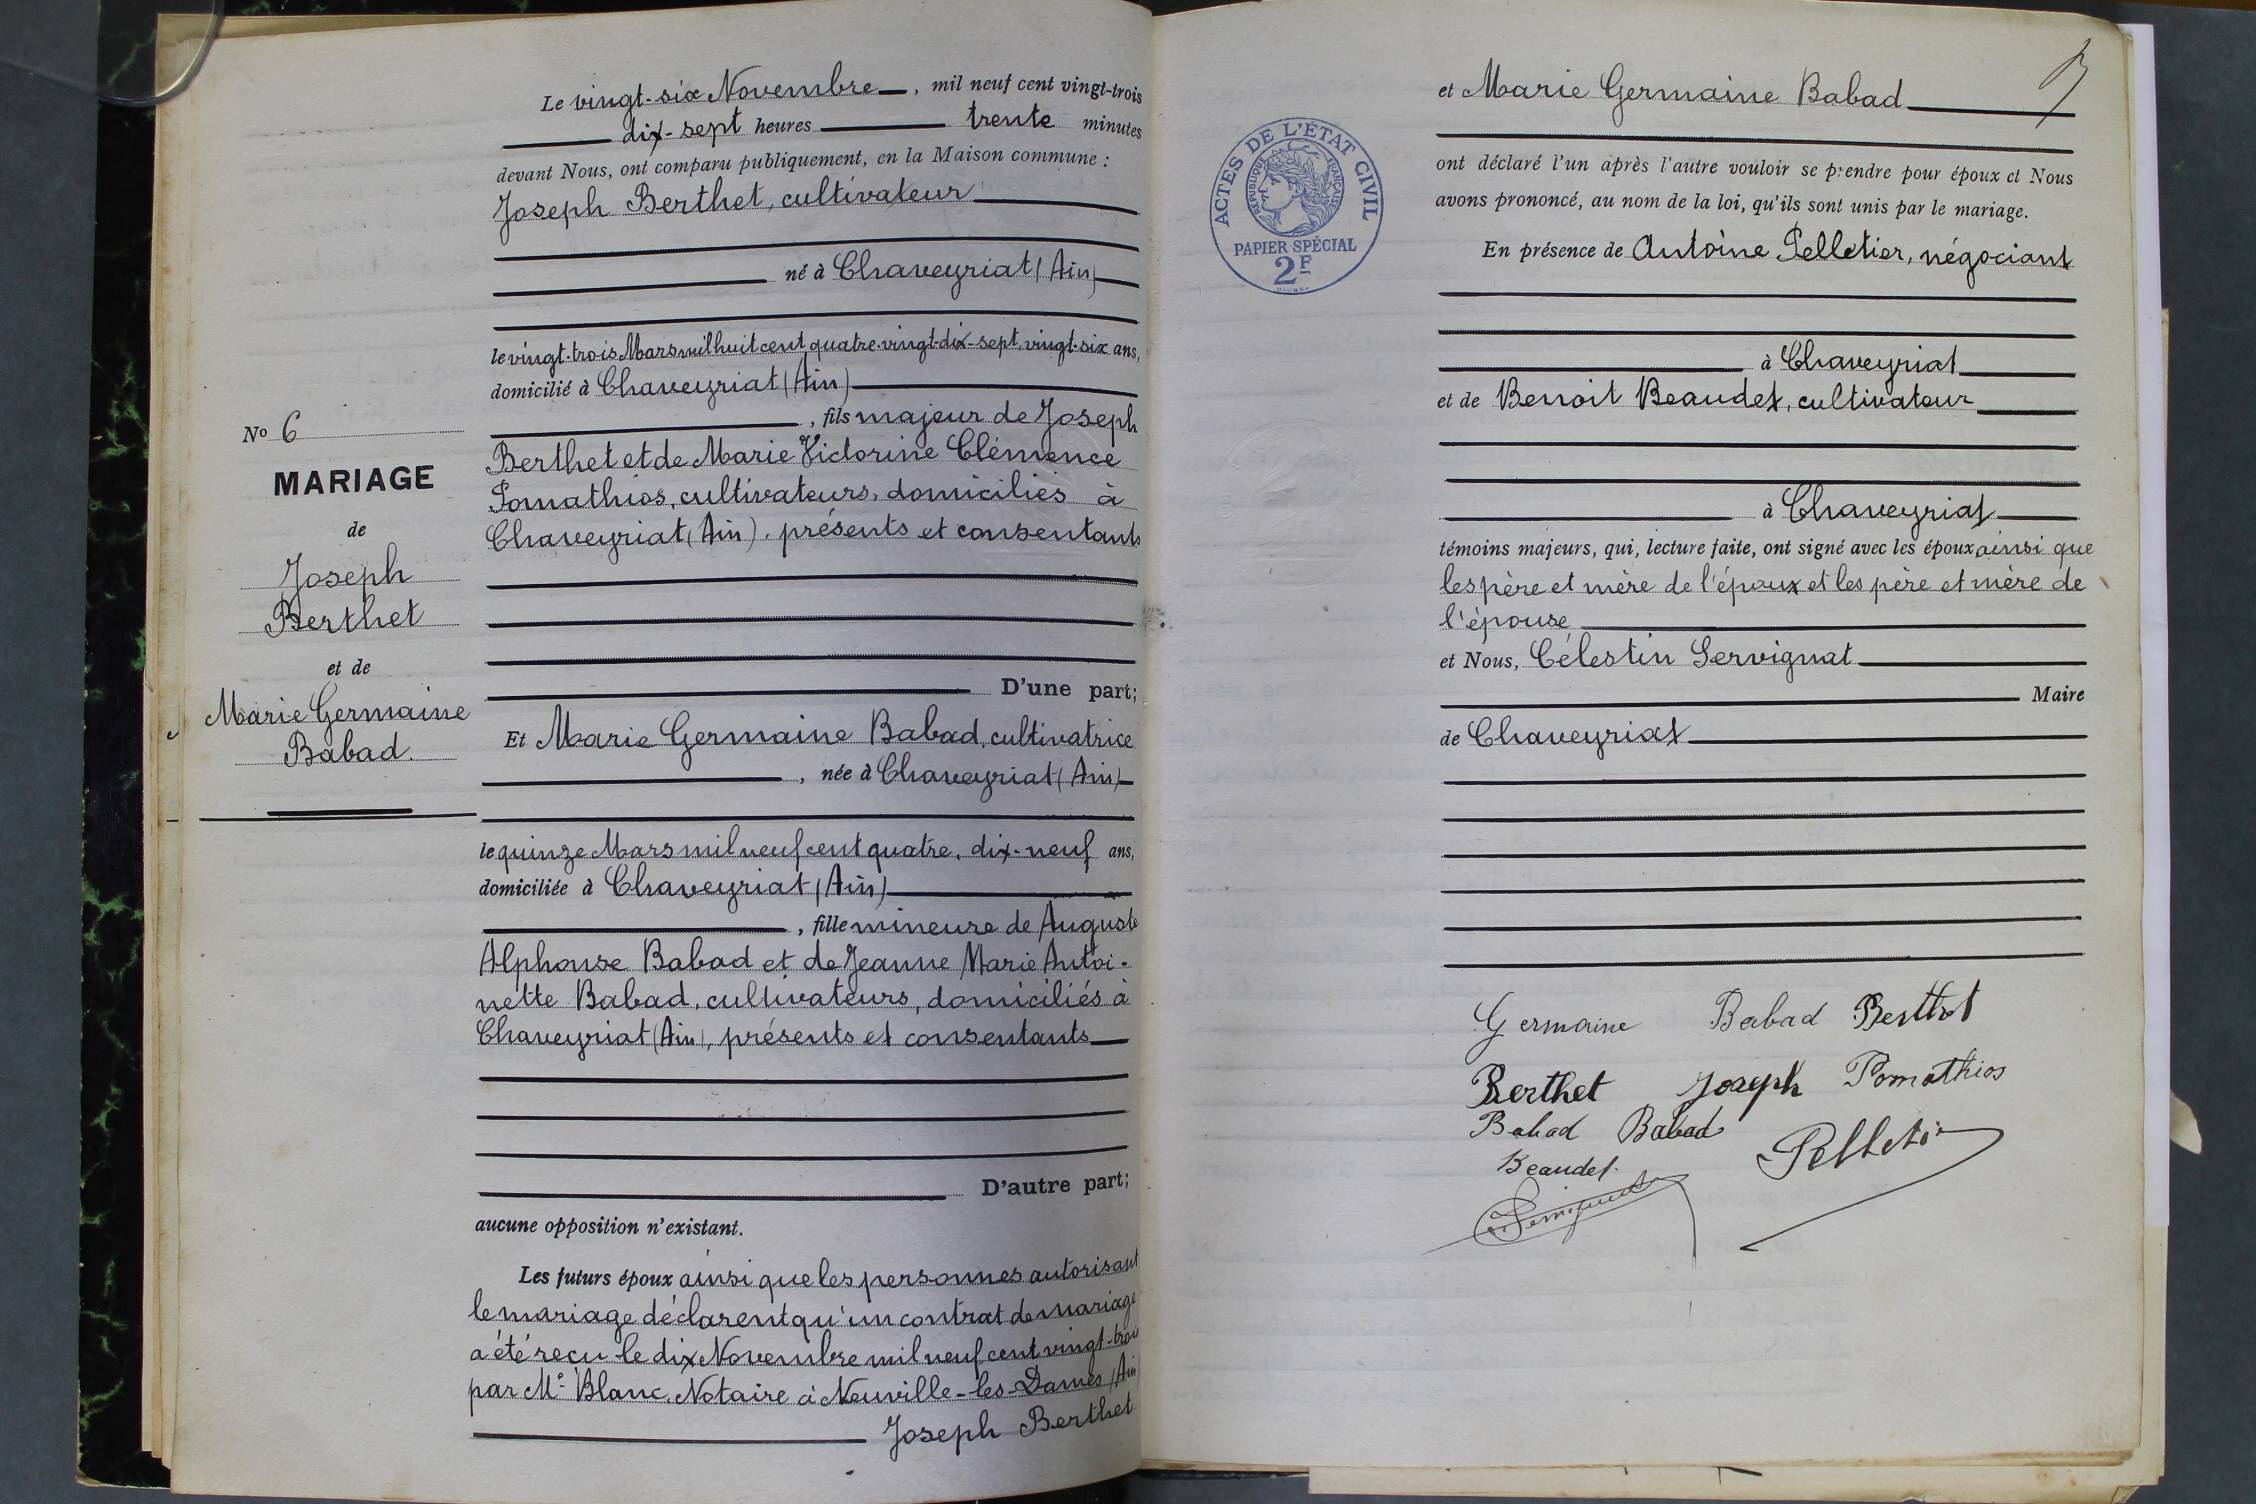 Le vingt-six Novembre, mil neuf cent vingt-trois
dix-sept heures trente minutes
devant Nous, ont comparu publiquement, en la Maison commune :
Joseph Berthet, cultivateur
né à Chaveyriat (Ain)
le vingt-trois Mars mil huit cent quatre-vingt-dix-sept, vingt-six ans,
domicilié à Chaveyriat (Ain)
, fils majeur de Joseph
Berthet et de Marie Victorine Clémence
Pomathios, cultivateurs, domiciliés à
Chaveyriat (Ain), présents et consentants
D'une part;
No 6
MARIAGE
de
Joseph
Berthet
et de
Marie Germaine
Babad.
Et Marie Germaine Babad, cultivatrice
, née à Chaveyriat (Ain)
le quinze Mars mil neuf cent quatre, dix-neuf ans,
domiciliée à Chaveyriat (Ain)
, fille mineure de Auguste
Alphonse Babad et de Jeanne Marie Antoi-
nette Babad, cultivateurs, domiciliés à
Chaveyriat (Ain), présents et consentants
D'autre part;
aucune opposition n'existant.
Les futurs époux ainsi que les personnes autorisant
le mariage déclarent qu'un contrat de mariage
a été reçu le dix Novembre mil neuf cent vingt-trois
par Me Blanc, Notaire à Neuville-les-Dames (Ain
Joseph Berthet
et Marie Germaine Babad
ACTES DE L'ÉTAT CIVIL
RÉPUBLIQUE FRANÇAISE
PAPIER SPÉCIAL
2F
ont déclaré l'un après l'autre vouloir se prendre pour époux et Nous
avons prononcé, au nom de la loi, qu'ils sont unis par le mariage.
En présence de Antoine Pelletier, négociant
à Chaveyriat
et de Benoit Beaudet, cultivateur
à Chaveyriat
témoins majeurs, qui, lecture faite, ont signé avec les époux ainsi que
les père et mère de l'époux et les père et mère de
l'épouse
et Nous, Célestin Servignat
Maire
de Chaveyriat
Germaine Babad Berthet
Berthet Joseph Pomathios
Babad Babad
Pelletier
Beaudet